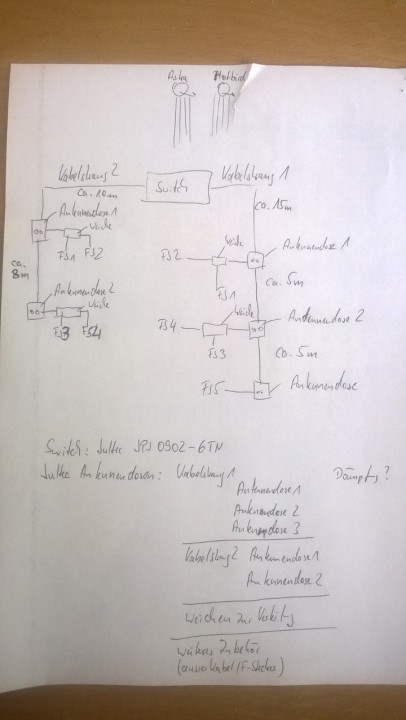 Astra Hotbird
Kabelstrang 2 Switch Kabelstrang 1
ca. 10m
ca. 15m
Antennendose 1
Weiche
FS1 FS2
ca. 8m
Antennendose 2
Weiche
FS3 FS4
Antennendose 1
Weiche
FS2
FS1
ca. 5m
Antennendose 2
Weiche
FS4
FS3
ca. 5m
FS5 Antennendose
Switch: Jultec JPS 0902-6TN
Jultec Antennendosen: Kabelstrang 1 Dämpfg?
Antennendose 1
Antennendose 2
Antennendose 3
Kabelstrang 2 Antennendose 1
Antennendose 2
Weichen zur
weiteres Zubehör
(ausser Kabel/F-Stecker)